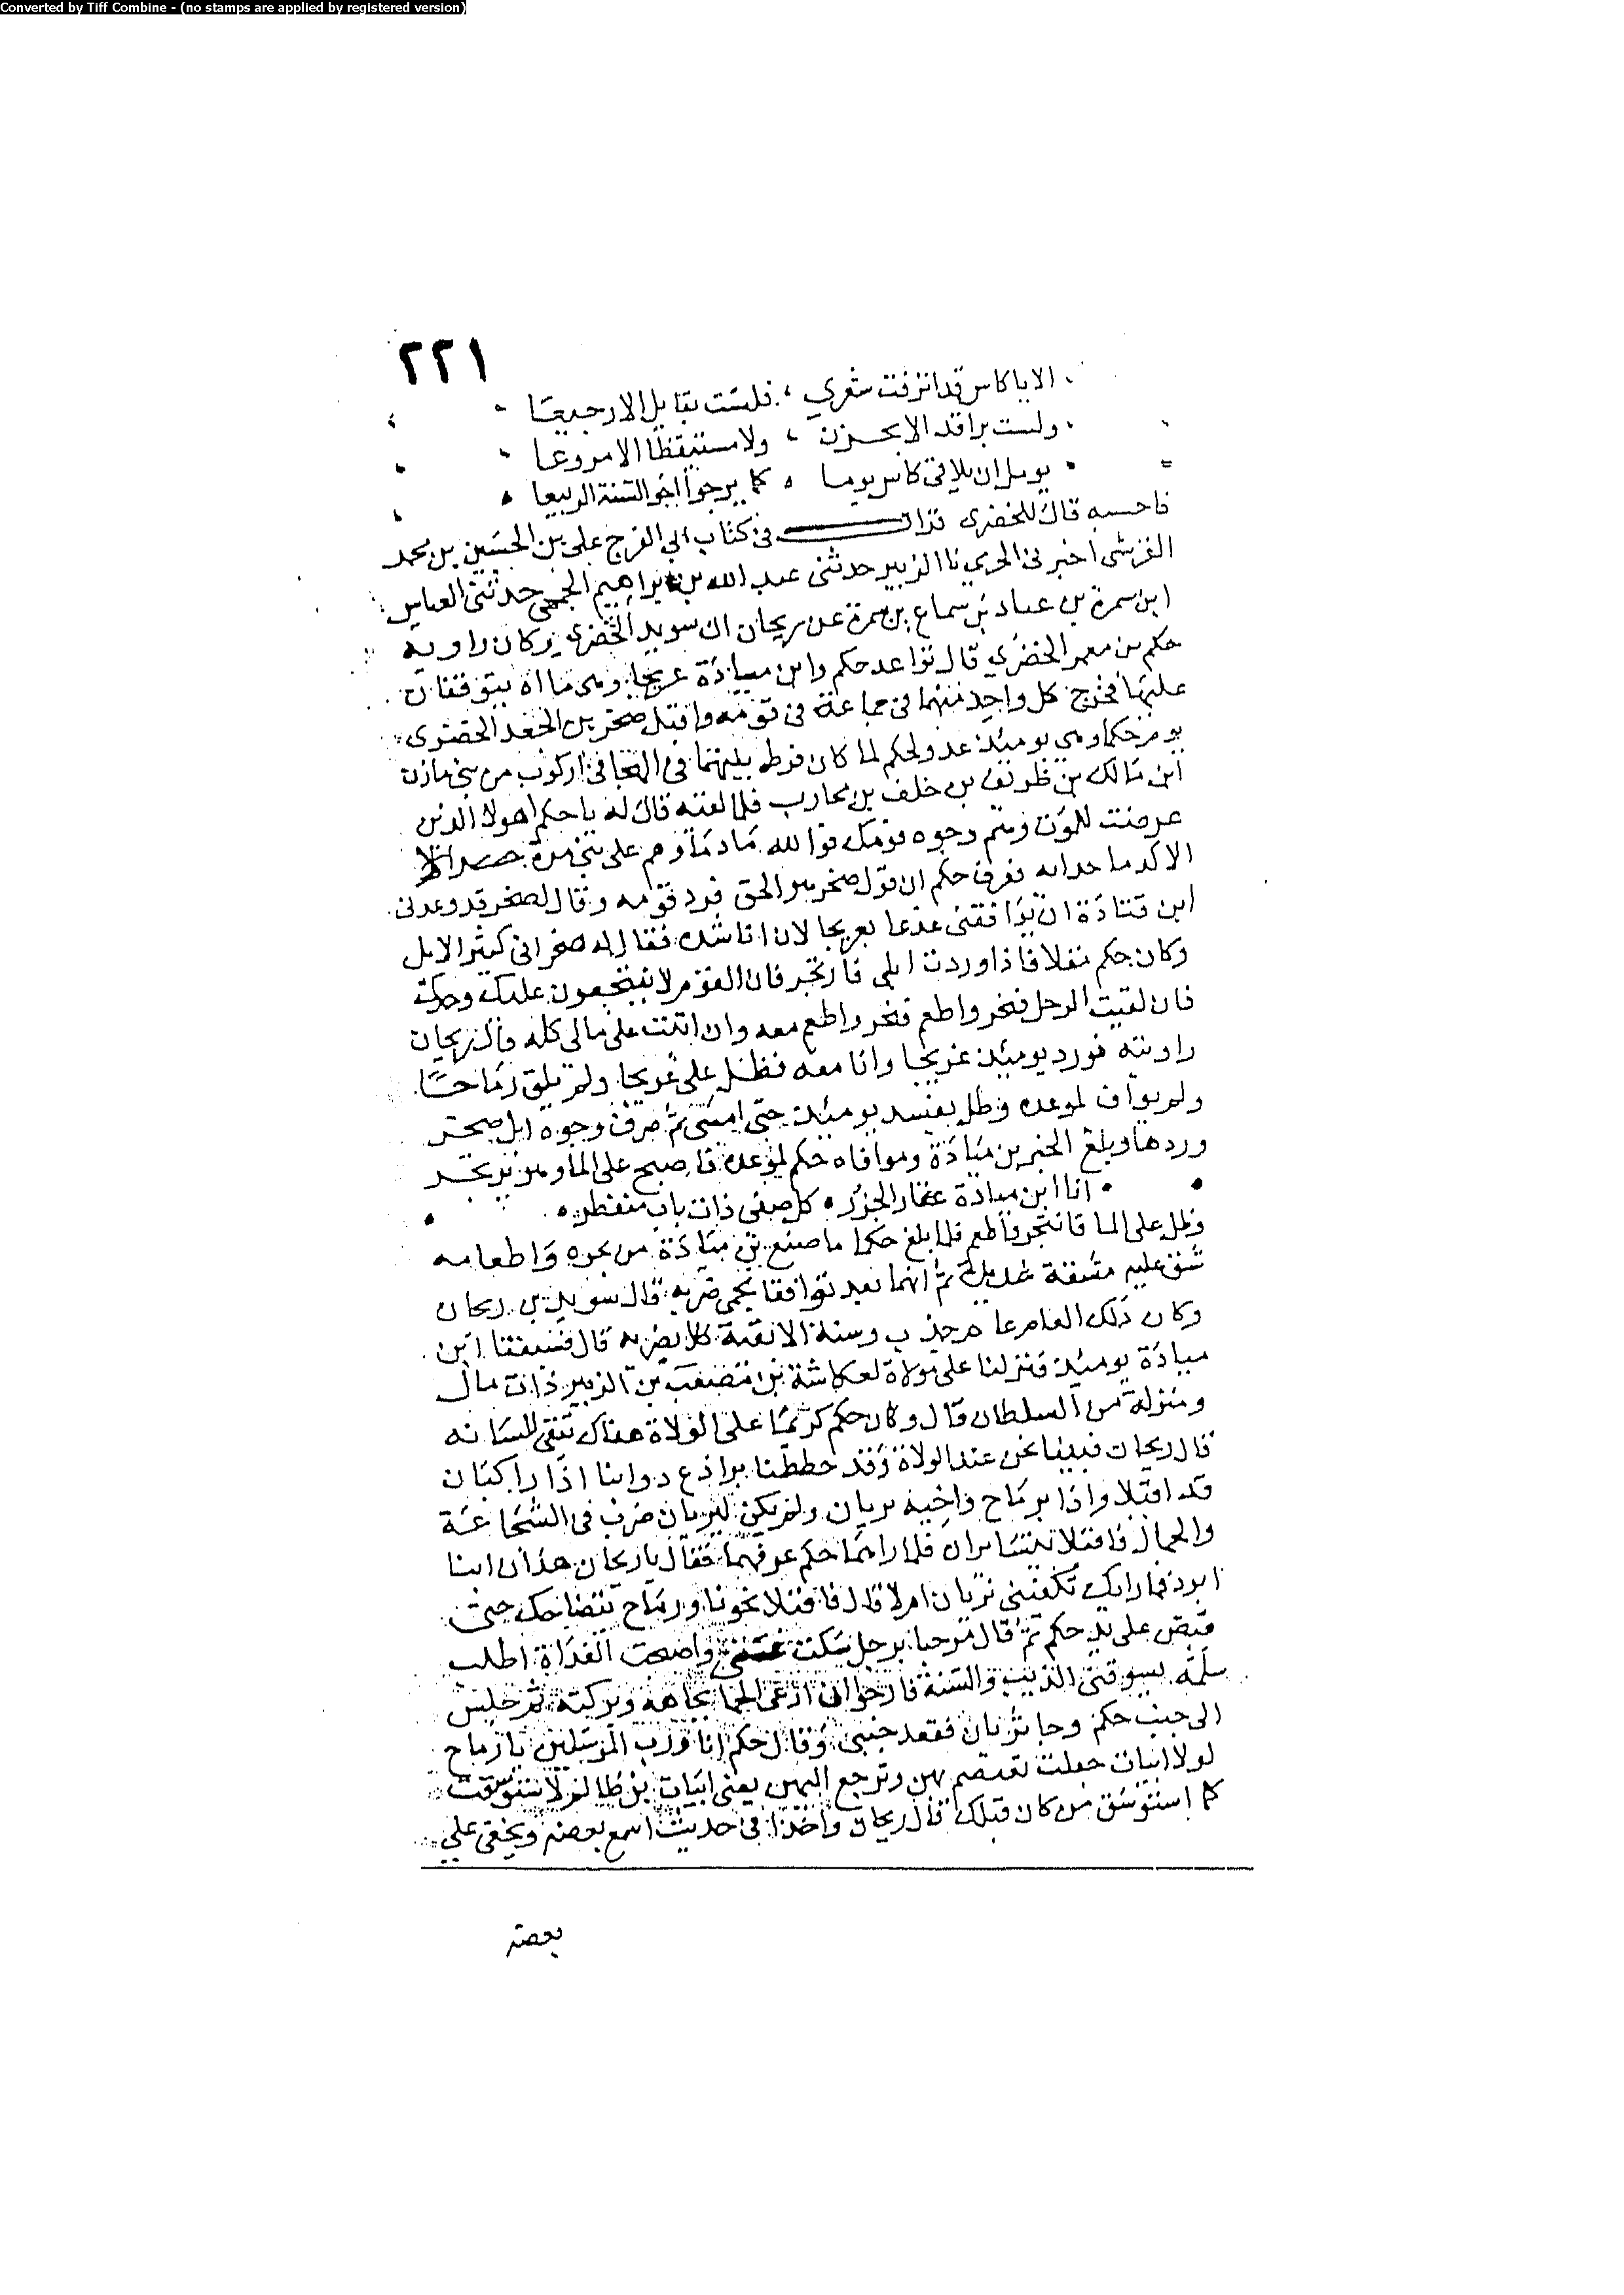 Converted by Tiff Combine - (no stamps are applied by registered version)
٢٢١
الا يا كاس قد انزفت شعري ، فلست بقايل الا رجيعا
ولست براقد الا بحزن ، ولا مستيقظا الا مروعا
يومل ان يلاقي كاس يوما ه كما يرجوا اخو السنة الربيعا
فاحسبه قال للخضري قرات في كتاب ابي الفرج علي بن الحسين بن محمد
القرشي اخبرني الحرمي نا الزبير حدثني عبد الله بن ابراهيم الجمحي حدثني العباس
ابن سمرة بن عباد بن سماع بن سمرة عن ريحان ابن سويد الخضري وكان راوية
حكم بن معمر الخضري قال تواعد حكم وابن ميادة عريجا وهي ماأة يتوقفان
عليها فخرج كل واحد منهما في جماعة في قومه واقبل صخر بن الجعد الخضري
يوم حكما وهو يومئذ عدو لحكم لما كان فرط بينهما في الهجا في اركوب من بني مازن
ابن مالك بن ظريف بن خلف بن محارب فلما لقيه قال له يا حكم اهولا الذين
عرضت للموت وهم وجوه قومك فوالله ما دماوهم على بني مرة
الا كدما جدايه فعرف حكم ان قول صخر هو الحق فرد قومه وقال لصخر قد وعدني
ابن قتادة ان يوافقني غدا بعريجا لان اناشده فقال له صخر اني كثير الابل
وكان حكم مقلا فاذا وردت ابلي فارتجز فان القوم لا يشجعون عليك وحدك
فان لقيت الرجل فنحر واطعم فنحر واطعم معه وان اتيت على مالي كله قال ريحان
راويته فورد يومئذ عريجا وانا معه فظل على عريجا ولم يلق رماحا
ولم يواف لموعده وظل ينشد يومئذ حتى امسى ثم صرف وجوه ابل صخر
وردها وبلغ الخبر بن ميادة وموافاه حكم لموعده فاصبح على الما وهو يرتجز
انا ابن ميادة عقار الجزر ه كل صفي ذات باب منفطر ه
وظل على الما فانتحر فاطعم فلما بلغ حكما ما صنع بن ميادة من نحره واطعامه
شق عليه مشقة شديدة ثم انهما بعد توافقا بحمى ضرية قال سويد بن ريحان
وكان ذلك العام عام جذب وسنة الا بقية كلا بضريه قال فسبقنا ابن
ميادة يومئذ فنزلنا على مولاة لعكاشة بن مصعب بن الزبير ذات مال
ومنزلة من السلطان قال وكان حكم كريما على الولاة هناك تتقى للسانه
قال ريحان فبينا نحن عند الولاة وقد حططنا براذع دوابنا اذا راكبان
قد اقبلا واذا برماح واخيه بريان ولم يكن لبريان ضرب في الشجاعة
والجمال فاقبلا يتسايران فلما راهما حكم عرفهما فقال يا ريحان هذان ابنا
ابرد فما رايك تكفيني تريان ام لا قال فاقبلا نحونا ورماح يتضاحك حتى
قبض على يد حكم ثم قال مرحبا برجل سكت عنه واصبحت الغداة اطلب
سلمه يسوقني الذيب والسنة فارجوا ان ارعى الحما بجاهه وبركته ثم جلس
الى جنب حكم وجا ثريان فقعد جنبي وقال حكم انا ورب المرسلين يا رماح
لولا ابيات جعلت تعتصم بهن وترجع اليهن يعني ابيات بن ظالم لاستوسقت
كما استوسق من كان قبلك قال ريحان واخذا في حديث اسمع بعضه ويخفى علي
بعضه